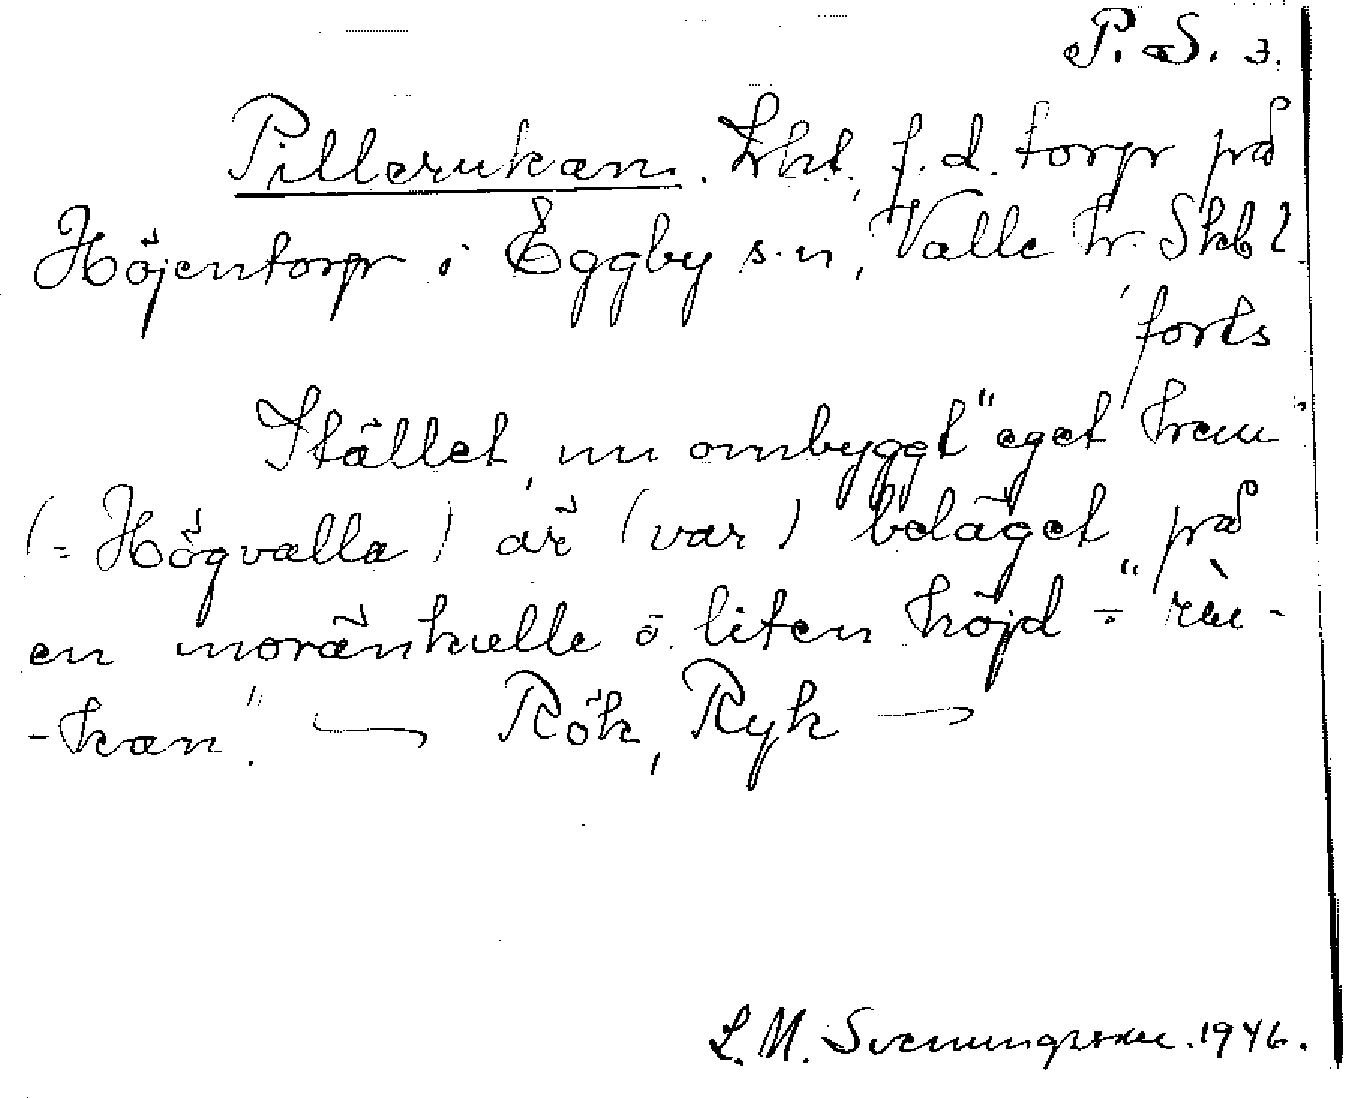 P. S. 3.
Pillerukan. Lht, f. d. torp på
Höjentorp i Eggby s.n, Valle hr. Skbl.
forts
Stället, nu ombyggt "eget hem"
(= Högvalla) är (var) beläget på
en moränkulle o. liten höjd = "rù-
-kan". — Rök, Ryk —
L. M. Svenungsson. 1946.